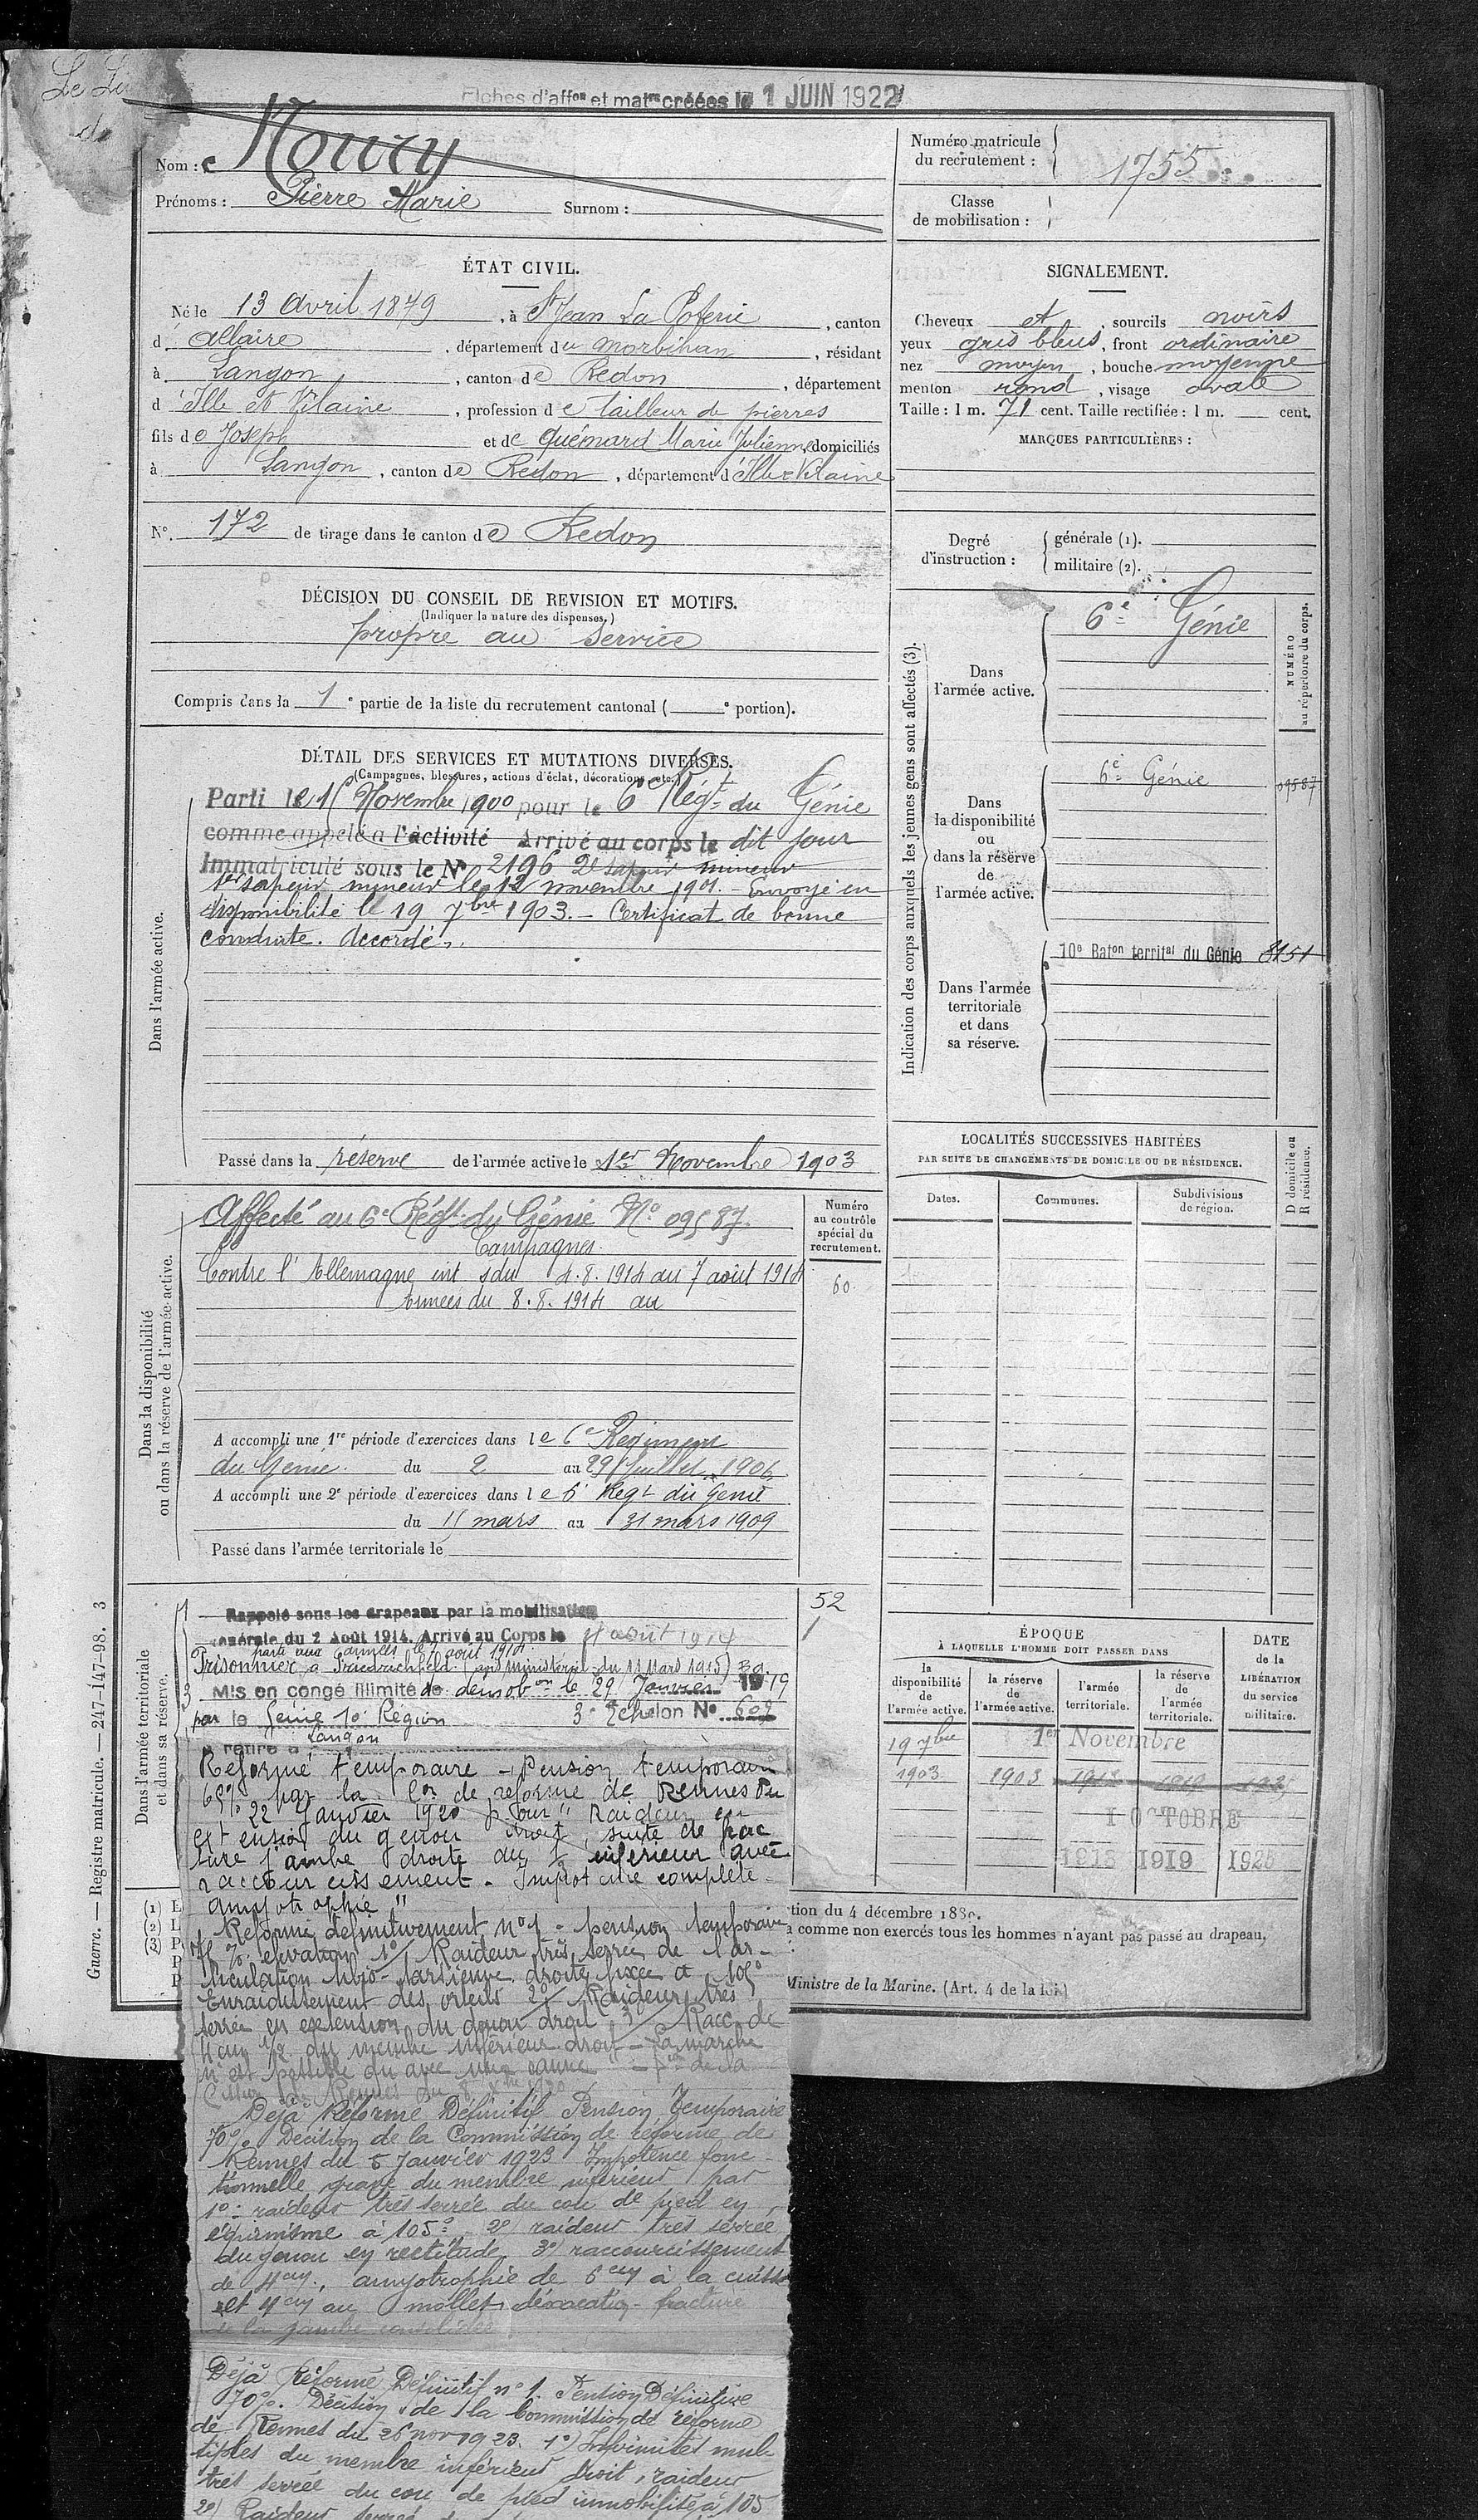 Le Li
de
Fiches d'affon et matres créées le 1 JUIN 1922
Nom : Noury
Prénoms : Pierre Marie Surnom :
Numéro matricule
du recrutement : 1755
Classe
de mobilisation :
ÉTAT CIVIL.
Né le 13 Avril 1879, à St Jean La Poterie, canton
d'Allaire, département du Morbihan, résidant
à Langon, canton de Redon, département
d'Ille et Vilaine, profession de tailleur de pierres
fils de Joseph et de Quémard Marie Julienne, domiciliés
à Langon, canton de Redon, département d'Ille & Vilaine
N° 172 de tirage dans le canton de Redon
SIGNALEMENT.
Cheveux et, sourcils noirs
yeux gris bleus, front ordinaire
nez moyen, bouche moyenne
menton rond, visage ovale
Taille : 1 m. 71 cent. Taille rectifiée : 1 m. cent.
MARQUES PARTICULIÈRES :
Degré
d'instruction :
générale (1).
militaire (2).
DÉCISION DU CONSEIL DE REVISION ET MOTIFS.
(Indiquer la nature des dispenses.)
propre au service
Compris dans la 1e partie de la liste du recrutement cantonal ( e portion).
DÉTAIL DES SERVICES ET MUTATIONS DIVERSES.
(Campagnes, blessures, actions d'éclat, décorations, etc.)
Dans l'armée active.
Parti le 16 Novembre 1900 pour le 6e Régt du Génie
comme appelé à l'activité Arrivé au corps le dit jour
Immatriculé sous le N° 2196 2e sapeur mineur
1er sapeur mineur le 12 novembre 1901. - Envoyé en
disponibilité le 19 7bre 1903. - Certificat de bonne
conduite. Accordé.
Passé dans la réserve de l'armée active le 1er Novembre 1903
Indication des corps auxquels les jeunes gens sont affectés (3).
NUMÉRO
au répertoire du corps.
Dans
l'armée active.
6e Génie
Dans
la disponibilité
ou
dans la réserve
de
l'armée active.
6e Génie 09587
Dans l'armée
territoriale
et dans
sa réserve.
10e Baton territal du Génie 8151
Dans la disponibilité
ou dans la réserve de l'armée active.
Numéro
au contrôle
spécial du
recrutement.
60
Affecté au 6e Régt du Génie N° 09587.
Campagnes.
Contre l'Allemagne int du 4.8.1914 au 7 août 1914
Armées du 8.8.1914 au
A accompli une 1re période d'exercices dans le 6e Régiment
du Génie du 2 au 29 Juillet 1906
A accompli une 2e période d'exercices dans le 6e Regt du Génie
du 15 mars au 31 mars 1909
Passé dans l'armée territoriale le
LOCALITÉS SUCCESSIVES HABITÉES
PAR SUITE DE CHANGEMENTS DE DOMICILE OU DE RÉSIDENCE.
Dates.
Communes.
Subdivisions
de région.
D domicile ou
R résidence.
Dans l'armée territoriale
et dans sa réserve.
52
1
Rappelé sous les drapeaux par la mobilisation
générale du 2 Août 1914. Arrivé au Corps le 4 août 1914
parti aux armées le 8 août 1914.
Prisonnier à Friedrichsfeld (avis ministériel du 11 Mars 1915)
Mis en congé illimité de démobon le 29 Janvier 1919
par le Génie 10e Région 3e Echelon N° 602
se retire à Langon
Réformé temporaire - Pension temporaire
65% par la Con de réforme de Rennes du
22 Janvier 1920 pour "Raideur en
extension du genou droit, suite de frac
ture jambe droite au ⅓ inférieur avec
raccourcissement. Impotence complète.
amyotrophie"
Réformé définitivement n°1 - pension temporaire
70% élévation 1°/ Raideur très serrée de l'ar-
ticulation tibio-tarsienne droite fixée à 105°
Enraidissement des orteils 2°/ Raideur très
serrée en extension du genou droit 3°/ Racc. de
4 cm ½ du membre inférieur droit - la marche
n'est possible qu'avec une canne
Déjà Réformé Définitif Pension Temporaire
70%. Décision de la Commission de réforme de
Rennes du 5 Janvier 1923 Impotence fonc-
tionnelle grave du membre inférieur par
1°- raideur très serrée du cou de pied en
équinisme à 105° - 2°/ raideur très serrée
du genou en rectitude. 3°/ raccourcissement
de 4cm., amyotrophie de 6cm à la cuisse
et 4cm au mollet fracture
de la jambe consolidée
Déjà Réformé Définitif n° 1. Pension Définitive
70%. Décision de la Commission de réforme
de Rennes du 26 nov 1923. 1°) Infirmités mul-
tiples du membre inférieur droit, raideur
très serrée du cou de pied immobilisé à 105
2°) Raideur
ÉPOQUE
À LAQUELLE L'HOMME DOIT PASSER DANS
la
disponibilité
de
l'armée active.
la réserve
de
l'armée active.
l'armée
territoriale.
la réserve
de
l'armée
territoriale.
DATE
de la
LIBÉRATION
du service
militaire.
19 7bre 1er Novembre
1903 1903
1 OCTOBRE
1913 1919 1925
(1) E
(2) L
(3) P
P
P
tion du 4 décembre 1889.
a comme non exercés tous les hommes n'ayant pas passé au drapeau,
Ministre de la Marine. (Art. 4 de la loi.)
Guerre. — Registre matricule. — 247-147-98. 3